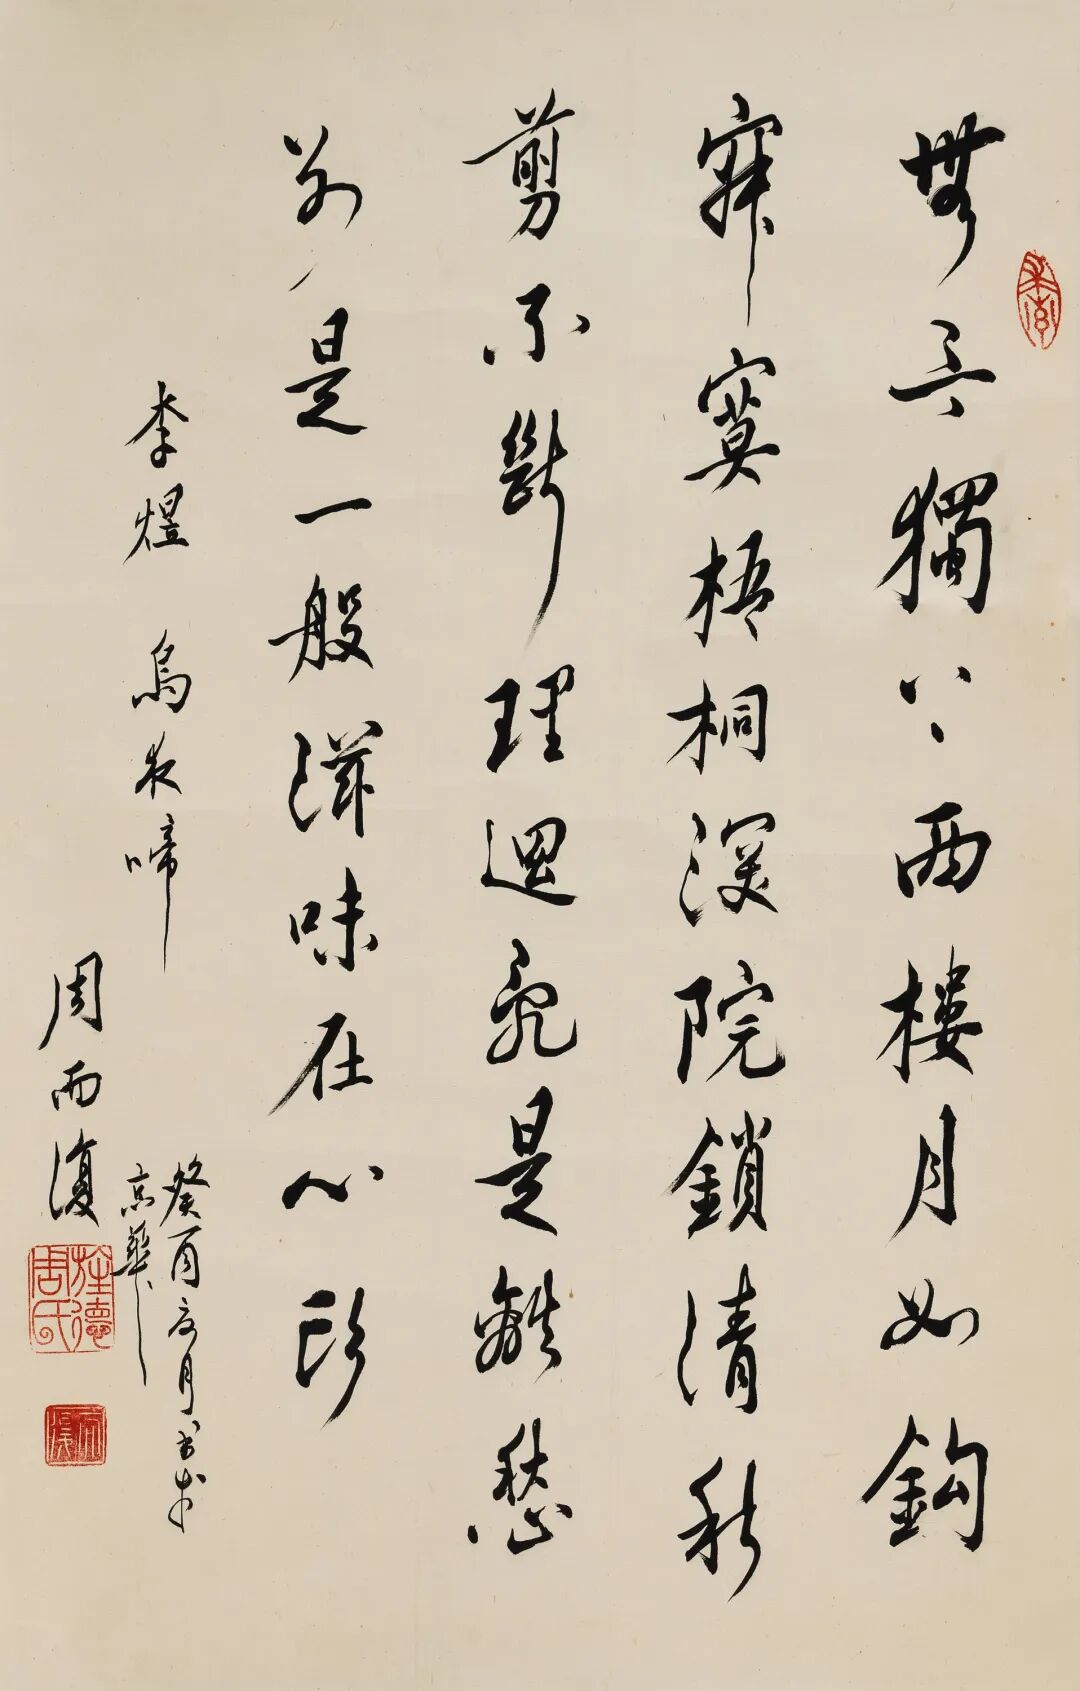 無言獨上西樓月如鈎
寂寞梧桐深院鎖清秋
剪不斷理還亂是離愁
別是一般滋味在心頭
李煜 烏夜啼
癸酉夏月書於
京華
周而復
旌德周氏